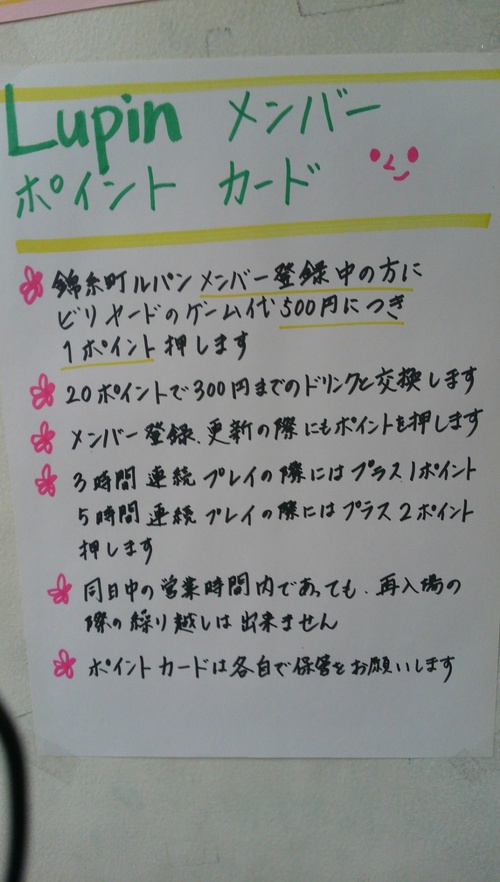 Lupin メンバー
ポイント カード
錦糸町ルパン メンバー登録中の方に
ビリヤードのゲーム代500円につき
1ポイント押します
20ポイントで300円までのドリンクと交換します
メンバー登録、更新の際にもポイントを押します
3時間連続プレイの際にはプラス1ポイント
5時間連続プレイの際にはプラス2ポイント
押します
同日中の営業時間内であっても、再入場の
際の繰り越しは出来ません
ポイントカードは各自で保管をお願いします